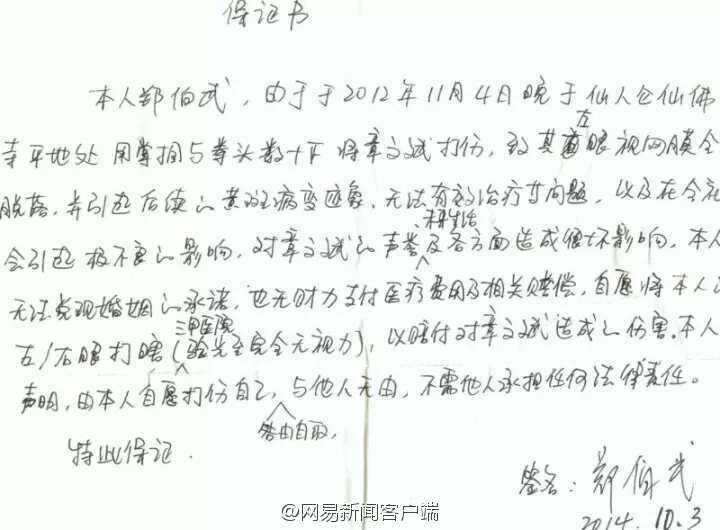 保证书
本人郑伯武，由于于2012年11月4日晚于仙人仑仙佛
左
寺平地处用掌掴与拳头数十下将章文斌打伤，致其眼视网膜全
脱落，并引起后续的黄斑病变迹象，无法有效治疗等问题，以及在令社
生活
会引起极不良的影响，对章文斌的声誉及各方面造成很坏影响，本人
无法兑现婚姻的承诺，也无财力支付医疗费用及相关赔偿，自愿将本人
三甲医院
左/右眼打瞎（验光至完全无视力），以赔付对章文斌造成的伤害。本人
声明，由本人自愿打伤自己，与他人无由，不需他人承担任何法律责任。
咎由自取，
特此保证.
签名：郑伯武
2014.10.3
@网易新闻客户端